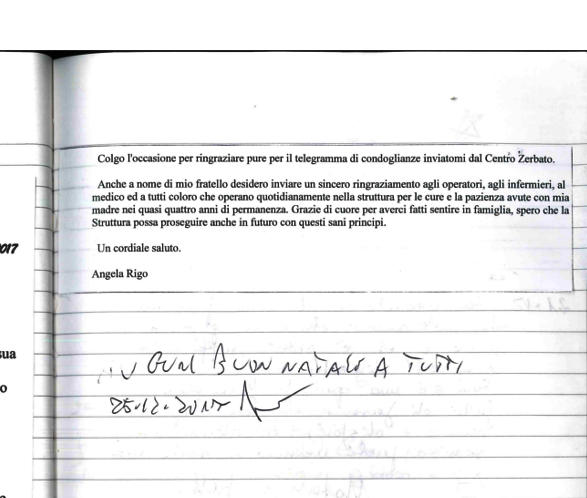 Colgo l'occasione per ringraziare pure per il telegramma di condoglianze inviatomi dal Centro Zerbato.
Anche a nome di mio fratello desidero inviare un sincero ringraziamento agli operatori, agli infermieri, al
medico ed a tutti coloro che operano quotidianamente nella struttura per le cure e la pazienza avute con mia
madre nei quasi quattro anni di permanenza. Grazie di cuore per averci fatti sentire in famiglia, spero che la
Struttura possa proseguire anche in futuro con questi sani principi.
Un cordiale saluto.
Angela Rigo
017
sua
o
BUON NATALE A TUTTI
25.12.2017